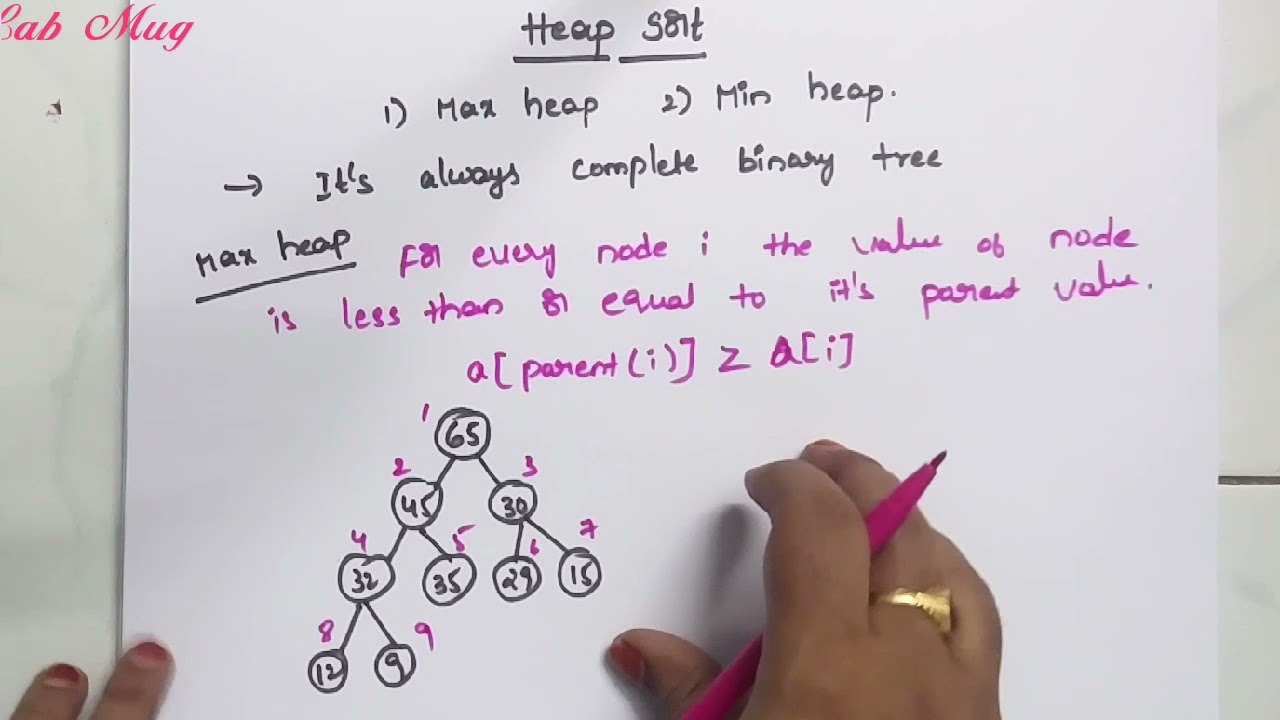 Bab Mug
Heap Sort
1) Max heap 2) Min heap.
→ It's always complete binary tree
Max heap For every node i the value of node
is less than or equal to it's parent value.
a[parent(i)] ≥ a[i]
1
65
2 3
45 30
4 5 6 7
32 35 29 15
8 9
12 9